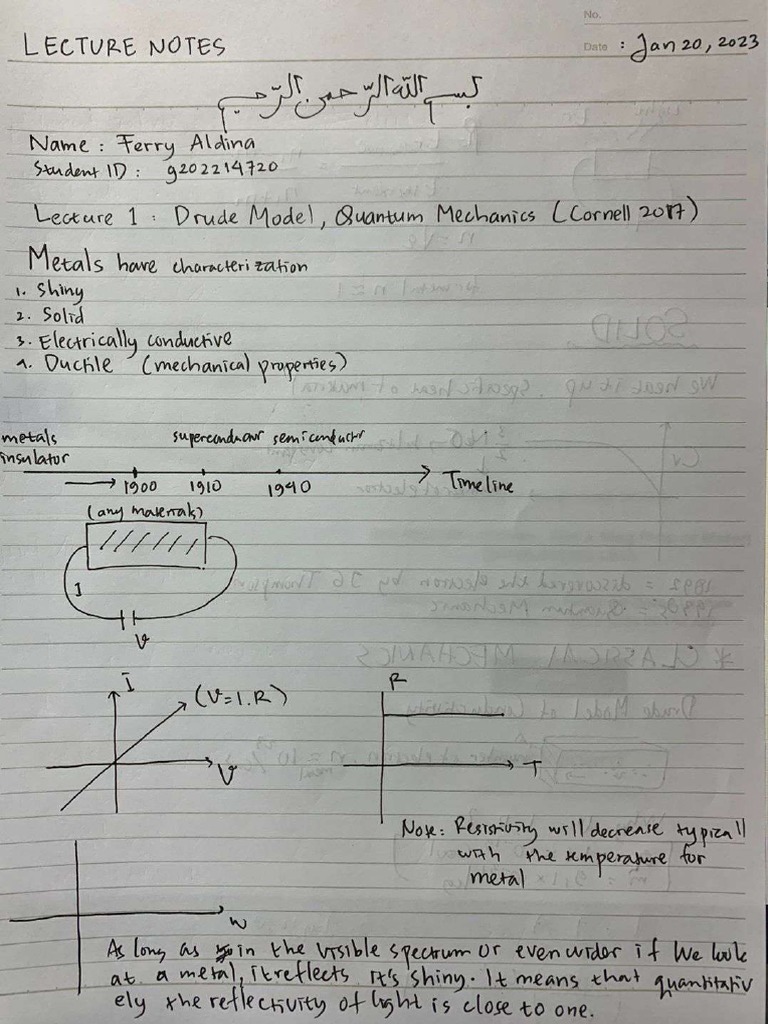 No.
LECTURE NOTES
Date : Jan 20, 2023
بسم الله الرّحمن الرّحيم
Name : Ferry Aldina
Student ID : g202214720
Lecture 1 : Drude Model, Quantum Mechanics (Cornell 2017)
Metals have characterization
1. Shiny
2. Solid
3. Electrically conductive
4. Ductile (mechanical properties)
metals superconductor semiconductor
insulator
1900 1910 1940 Timeline
(any materials)
I
V
I (V=I.R) R
V T
Note: Resistivity will decrease typicall
with the temperature for
metal
w
As long as in the visible spectrum or even wider if we look
at a metal, it reflects it's shiny. It means that quantitativ
ely the reflectivity of light is close to one.